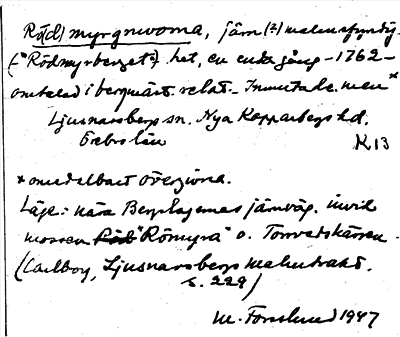 Rö(d)myrgruvorna, järn(?)malmsfyndig-
(="Rödmyrberget"?) het, en enda gång - 1762 -
omtalad i bergmäst. relat. - Inmutade men*
Ljusnarsbergs sn. Nya Kopparbergs hd.
Örebro län K 13
* omedelbart övergivna.
Läge: nära Bergslagernas järnväg. invid
mossen "Römyra" o. Torrvedskärren.
(Carlborg, Ljusnarsbergs malmtrakt.
s. 229)
M. Forslund 1947